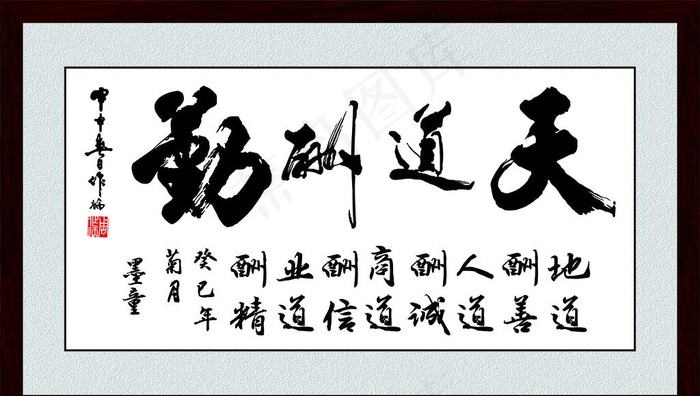 天道酬勤
地道酬善
人道酬诚
商道酬信
业道酬精
癸巳年
菊月
墨童